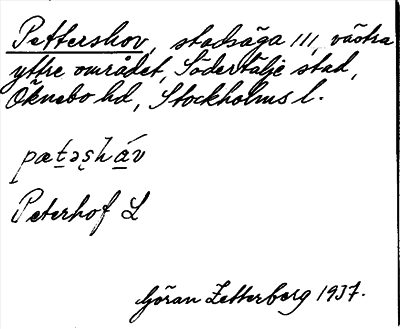 Pettershov, stadsäga 111, västra
yttre området, Södertälje stad,
Öknebo hd, Stockholms l.
pæt̲əs̲há̲v
Peterhof L
Göran Zetterberg 1937.